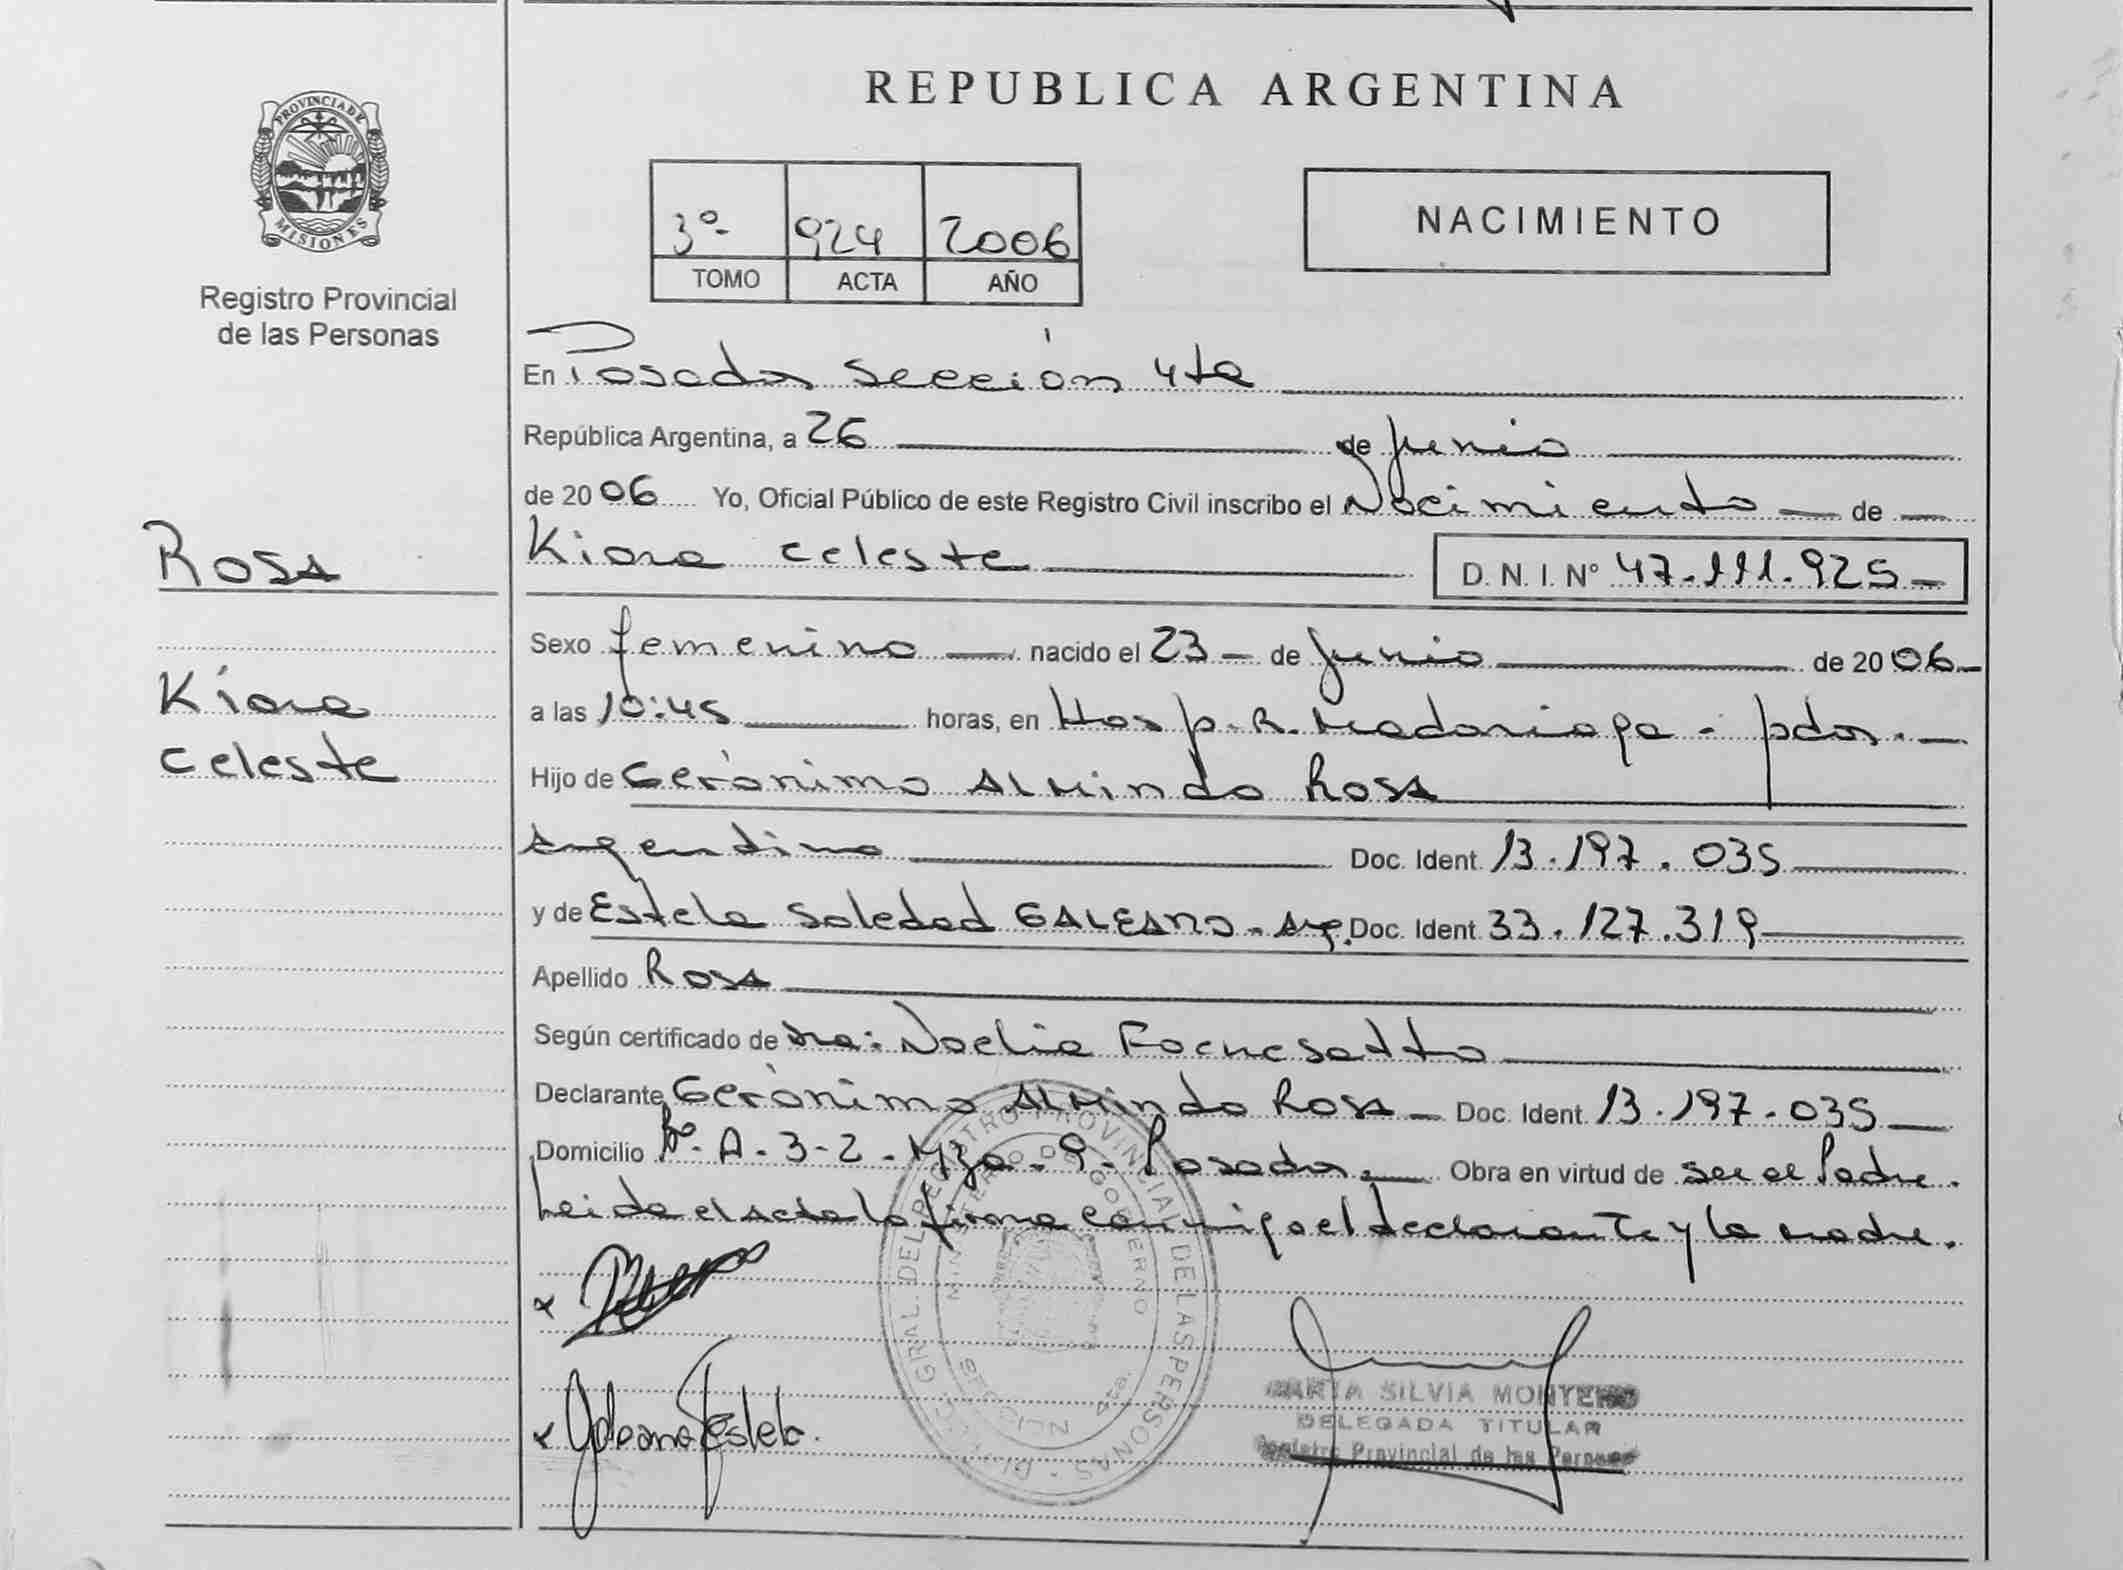 REPUBLICA ARGENTINA
PROVINCIA DE
MISIONES
Registro Provincial
de las Personas
3º 924 2006
TOMO ACTA AÑO
NACIMIENTO
En Posadas Sección 4ta
República Argentina, a 26 de Junio
de 2006 Yo, Oficial Público de este Registro Civil inscribo el Nacimiento de
Kiara Celeste D. N. I. Nº 47.111.925
ROSA
Kiara
Celeste
Sexo femenino nacido el 23 de Junio de 2006
a las 10:45 horas, en Hosp. R. Madariaga - pdas.
Hijo de Gerónimo ALMindo ROSA
Argentino Doc. Ident. 13.197.035
y de Estela Soledad GALEANO - Arg. Doc. Ident. 33.127.319
Apellido ROSA
Según certificado de Noelia
Declarante Gerónimo ALMindo ROSA Doc. Ident. 13.197.035
Domicilio Bº. A-3-2 - Mza. 9. Posadas. Obra en virtud de ser el Padre.
Leida el acta la firma conmigo el declarante y la madre.
x
x Galeano Estela.
DIREC. GRAL. DEL REGISTRO PROVINCIAL DE LAS PERSONAS
MINISTERIO DE GOBIERNO
SECCION 4ta.
SILVIA MONTERO
DELEGADA TITULAR
Registro Provincial de las Personas